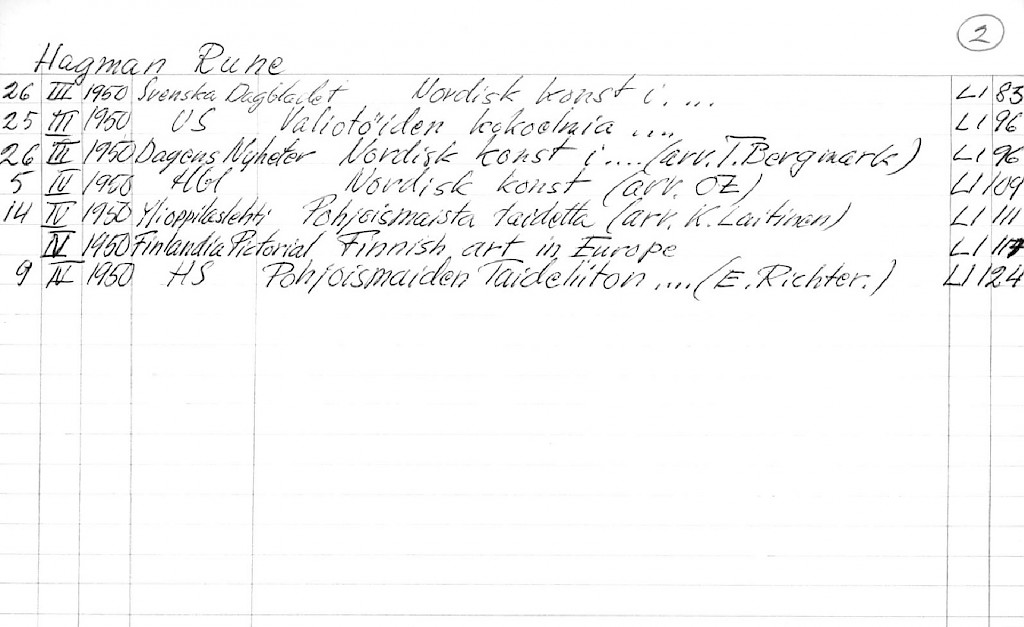 2
Hagman Rune
26 III 1950 Svenska Dagbladet Nordisk konst i.... LI 83
25 III 1950 US Valiotöiden kokoelmia .... LI 96
26 III 1950 Dagens Nyheter Nordisk konst i.... (arv. T. Bergmark) LI 96
5 IV 1950 Hbl Nordisk konst (arv. OZ) LI 109
14 IV 1950 Ylioppilaslehti Pohjoismaista taidetta (arv. K. Laitinen) LI 111
IV 1950 Finlandia Pictorial Finnish art in Europe LI 117
9 IV 1950 HS Pohjoismaiden Taideliiton .... (E. Richter.) LI 124